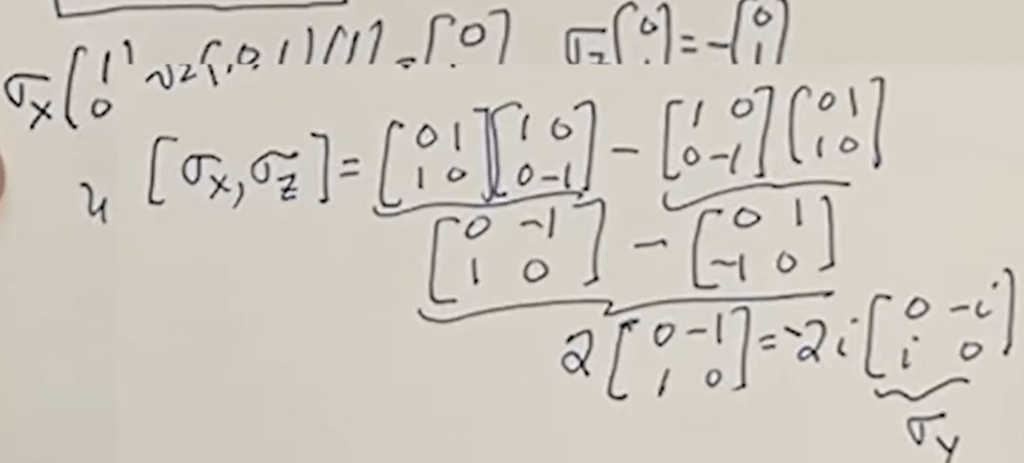 σx[1 0]
σz[0 1] = -[0 1]
[σx, σz] = [0 1; 1 0][1 0; 0 -1] - [1 0; 0 -1][0 1; 1 0]
[0 -1; 1 0] - [0 1; -1 0]
2[0 -1; 1 0] = -2i[0 -i; i 0]
σy